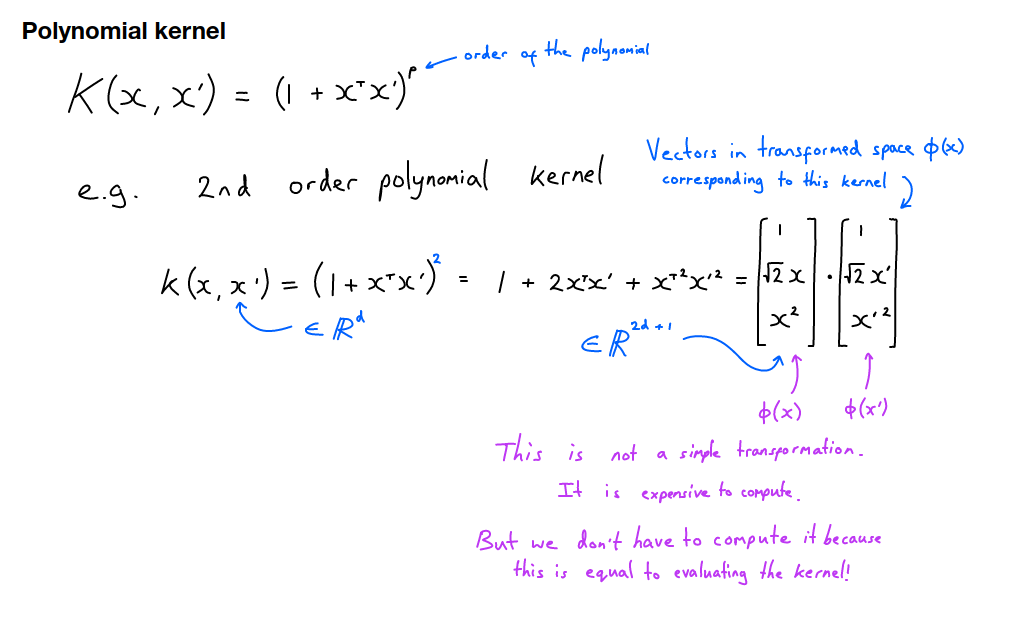 Polynomial kernel
K(x, x') = (1 + xᵀx')ᴾ ← order of the polynomial
e.g. 2nd order polynomial kernel
Vectors in transformed space ϕ(x)
corresponding to this kernel
k(x, x') = (1 + xᵀx')² = 1 + 2xᵀx' + xᵀ²x'² = [1 √2 x x²] · [1 √2 x' x'²]
∈ ℝᵈ
∈ ℝ²ᵈ⁺¹
ϕ(x) ϕ(x')
This is not a simple transformation.
It is expensive to compute.
But we don't have to compute it because
this is equal to evaluating the kernel!